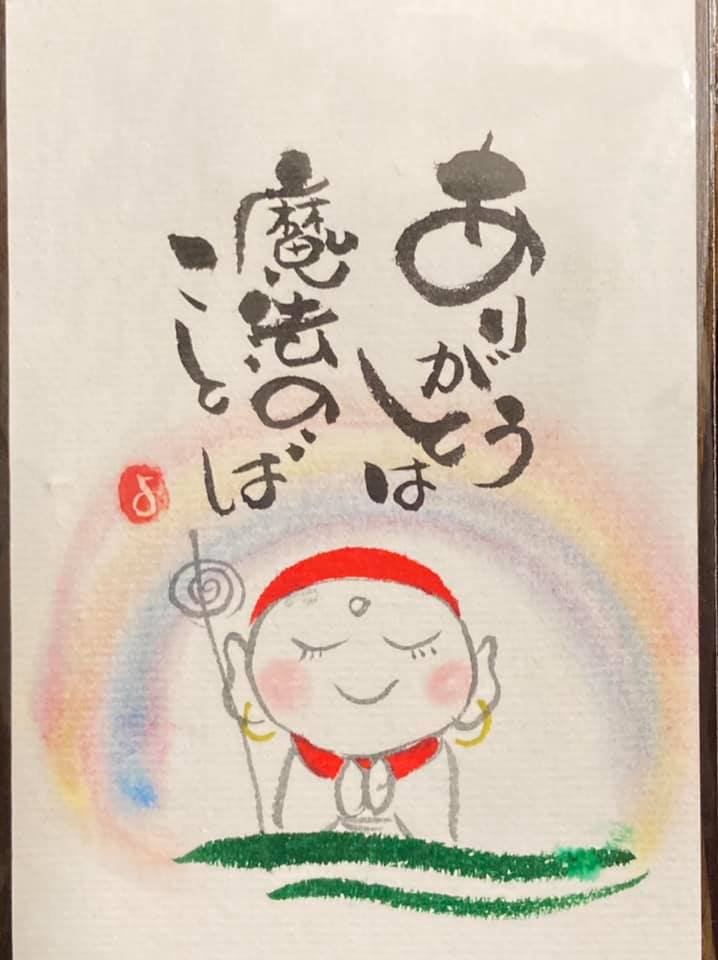 ありがとうは
魔法の
ことば
よ